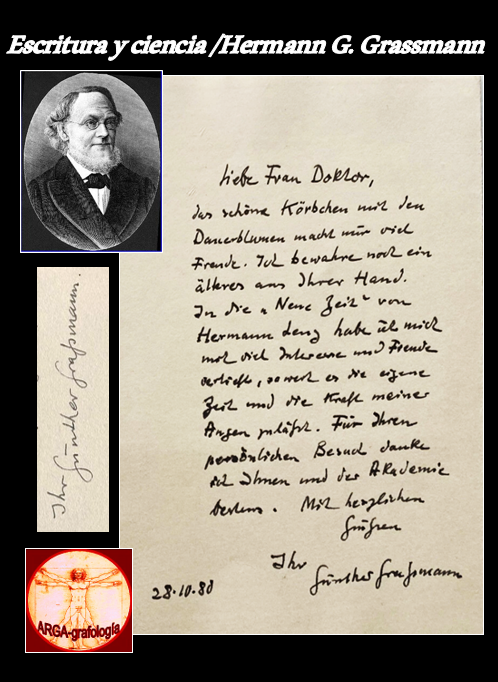 Escritura y ciencia /Hermann G. Grassmann
Liebe Frau Doktor,
das schöne Körbchen mit den
Dauerblumen macht mir viel
Freude. Ich bewahre noch ein
älteres aus Ihrer Hand.
In die „Neue Zeit" von
Hermann Lenz habe ich mich
mit viel Interesse und Freude
vertieft, soweit es die eigene
Zeit und die Kraft meiner
Augen zuläßt. Für Ihren
persönlichen Besuch danke
ich Ihnen und der Akademie
bestens. Mit herzlichen
Grüßen
Ihr
Günther Graßmann
28.10.88
Ihr Günther Graßmann.
ARGA-grafología